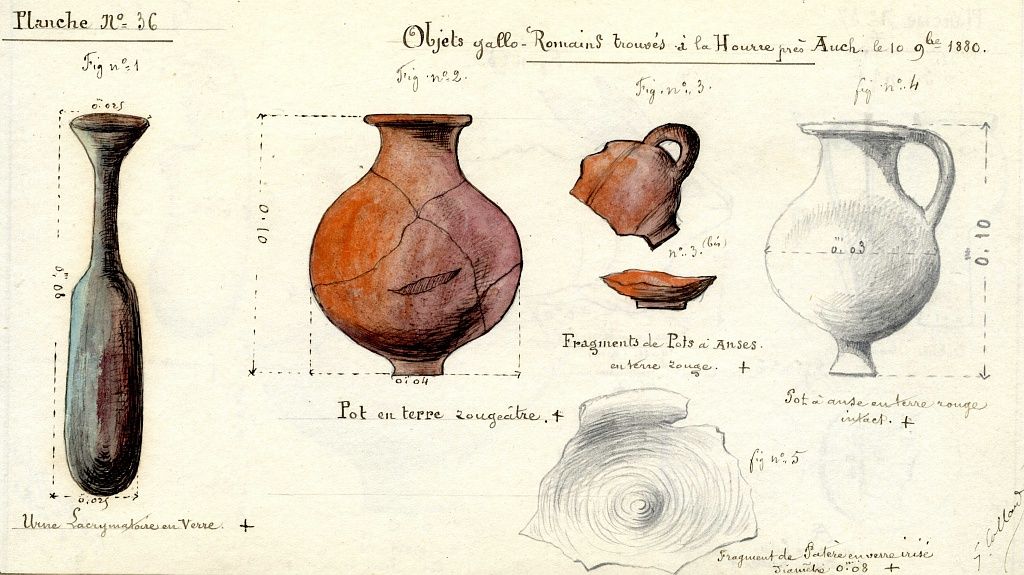 Planche Nº 36
Objets gallo-Romains trouvés à la Hourre près Auch. le 10 9bre 1880.
Fig nº 1
0.m025
0.m08
0.m025
Urne Lacrymatoire en Verre. +
Fig. nº 2.
0.m10
0.m04
Pot en terre rougeâtre. +
Fig. nº 3.
nº 3. (bis)
Fragments de Pots à Anses.
en terre rouge. +
fig nº 4
0.m03
0.m10
Pot à anse en terre rouge
intact. +
fig nº 5
Fragment de Patère en verre irisé
Diamètre 0.m08 +